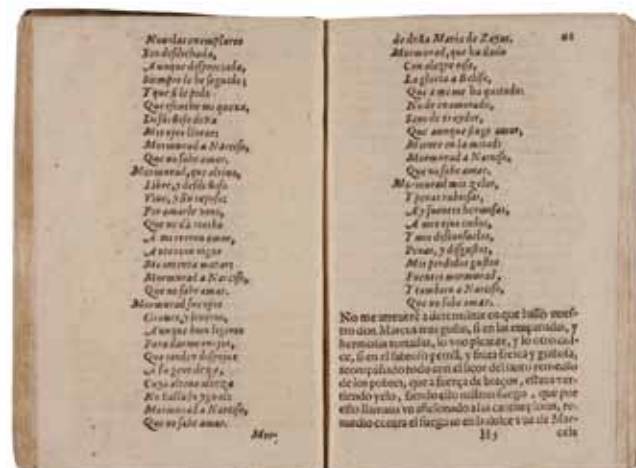 Novelas exemplares
Soy desdichada,
Aunque despreciada,
Siempre le he seguido;
Y que si le pido
Que escuche mi quexa,
Desdeñoso dexa
Mis ojos llorar:
Mormurad a Narciso,
Que no sabe amar.
Mormurad, que altivo,
Libre, y desdeñoso
Vive, y sin reposo
Por amarle vivo,
Que no da recibo
A mi eterno amor,
Antes con rigor
Me intenta matar:
Mormurad a Narciso,
Que no sabe amar.
Mormurad sus ojos
Graves, y severos,
Aunque bien ligeros
Para darme enojos,
Que rinden despojos
A su
Cuya altiva alteza
No halla su igual:
Mormurad a Narciso,
Que no sabe amar.
Mor-
de doña Maria de Zayas.
Mormurad, que ha dado
Con alegre risa,
La gloria a Belisa,
Que a mi me ha quitado:
No de enamorado,
Sino de traydor,
Que aunque finge amor,
Miente en la mitad:
Mormurad a Narciso,
Que no sabe amar.
Mormurad mis zelos,
Y penas rabiosas,
Ay fuentes hermosas,
A mis ojos cielos,
Y mis desconsuelos,
Penas, y disgustos
Mis perdidos gustos
Fuentes mormurad,
Y tambien a Narciso,
Que no sabe amar.
No me atreverè a determinar en que hallò nues-
tro don Marcos mas gusto, si en las empanadas, y
hermosas tortadas, lo uno picante, y lo otro dul-
ce, si en el sabroso pernil, y fruta fresca y gustosa,
acompañado todo con el licor del santo remedio
de los pobres, que a fuerça de braços, estava ver-
tiendo yelo, siendo ello mismo fuego, que por
esso llamava un aficionado a las cantimploras, re-
medio contra el fuego: o en la dulce voz de Mar-
H5 cela